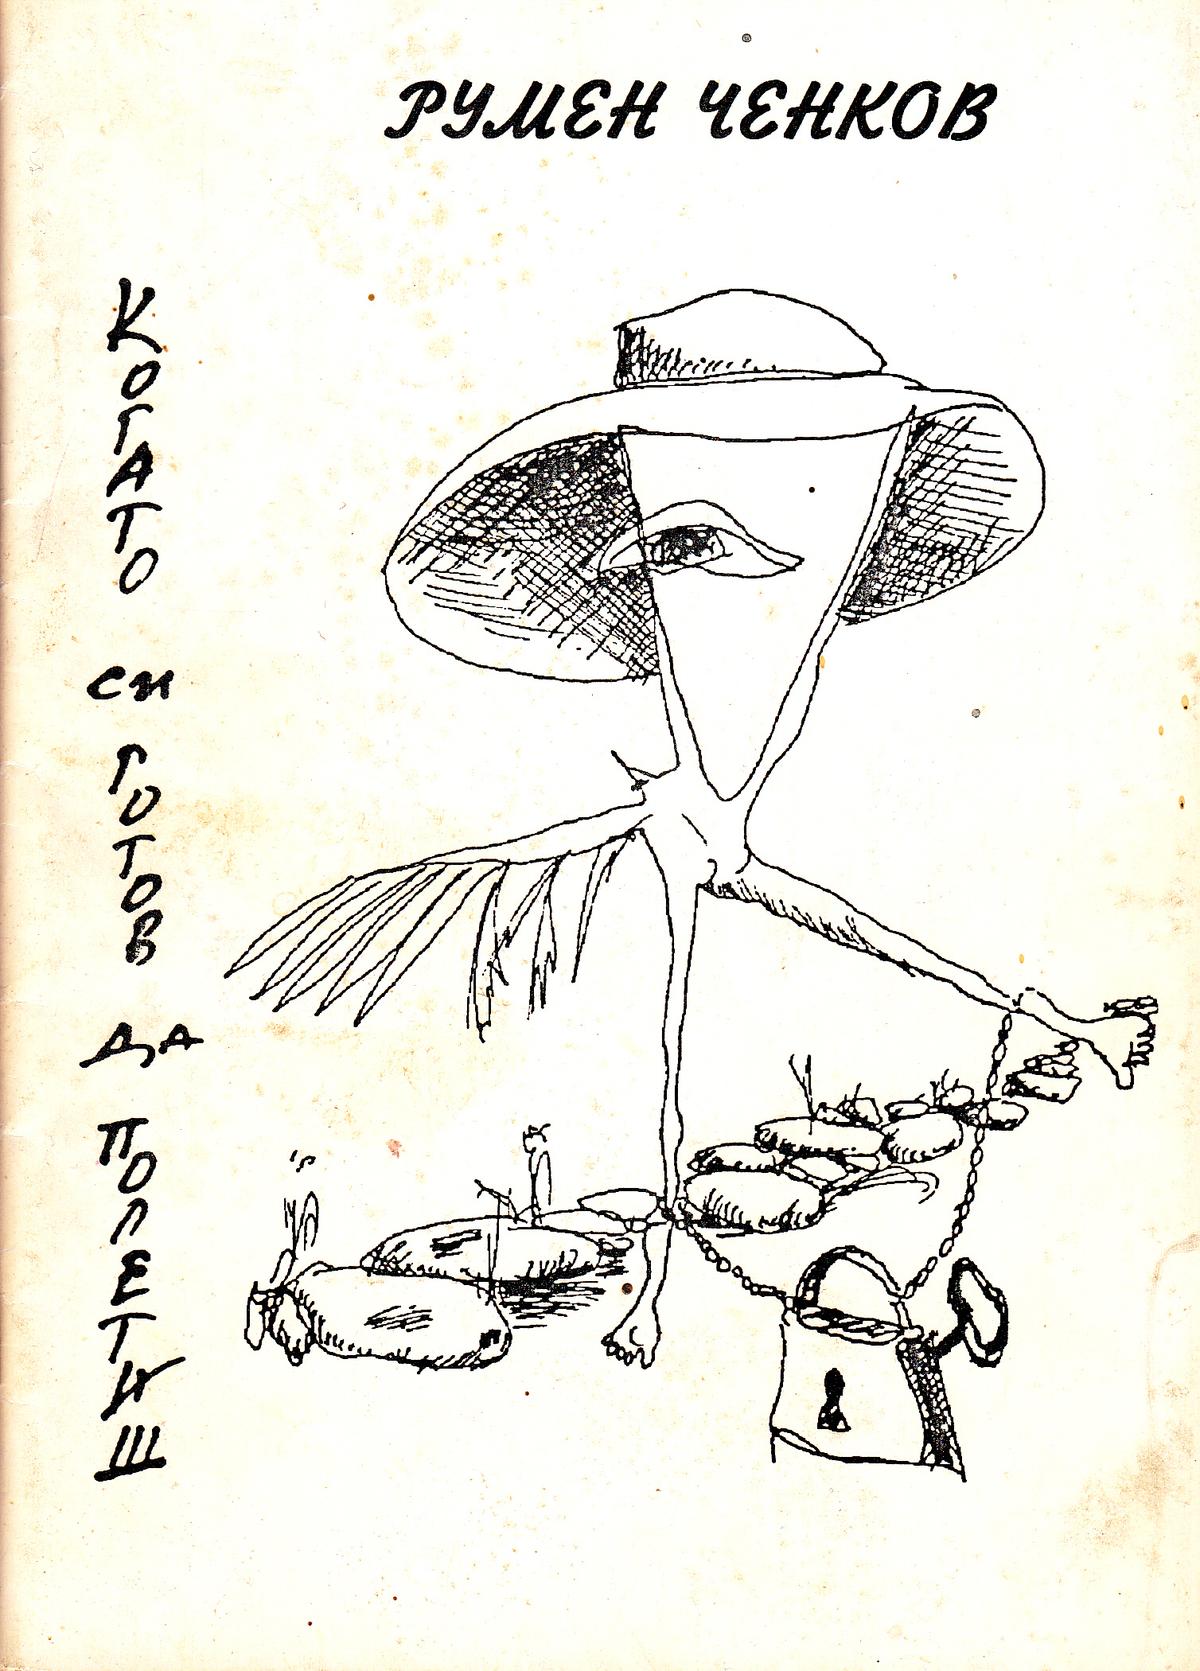 РУМЕН ЧЕНКОВ
КОГАТО
си
ГОТОВ
ДА
ПОЛЕТИШ